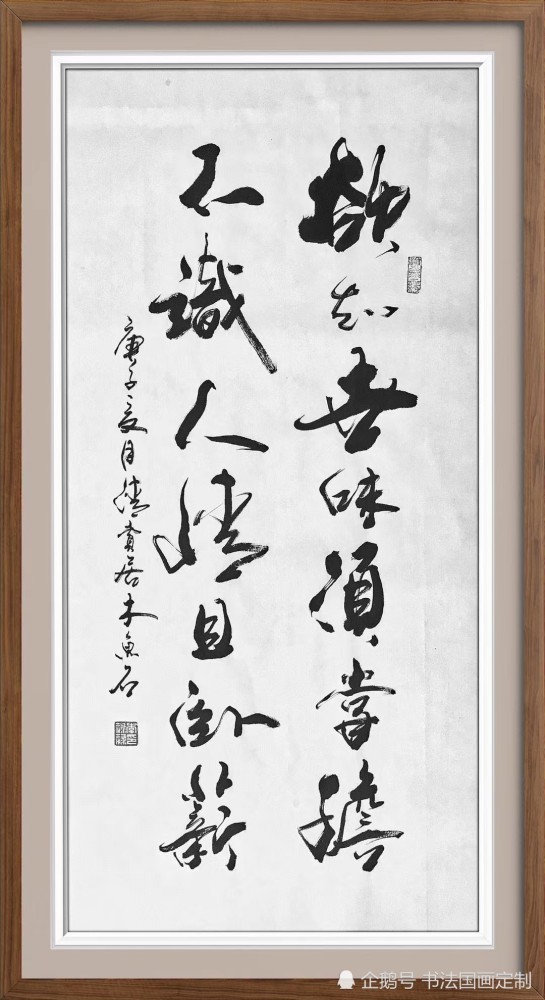 欲知世味須嘗膽
不識人情且臥薪
庚子夏月清賞居木魚石
企鹅号 书法国画定制